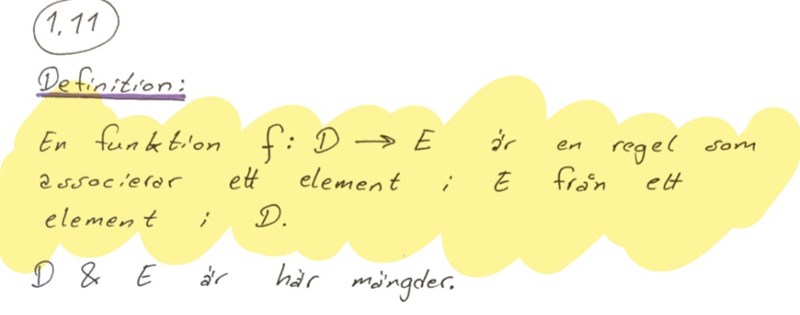 1.11
Definition:
En funktion f: D → E är en regel som
associerar ett element i E från ett
element i D.
D & E är här mängder.